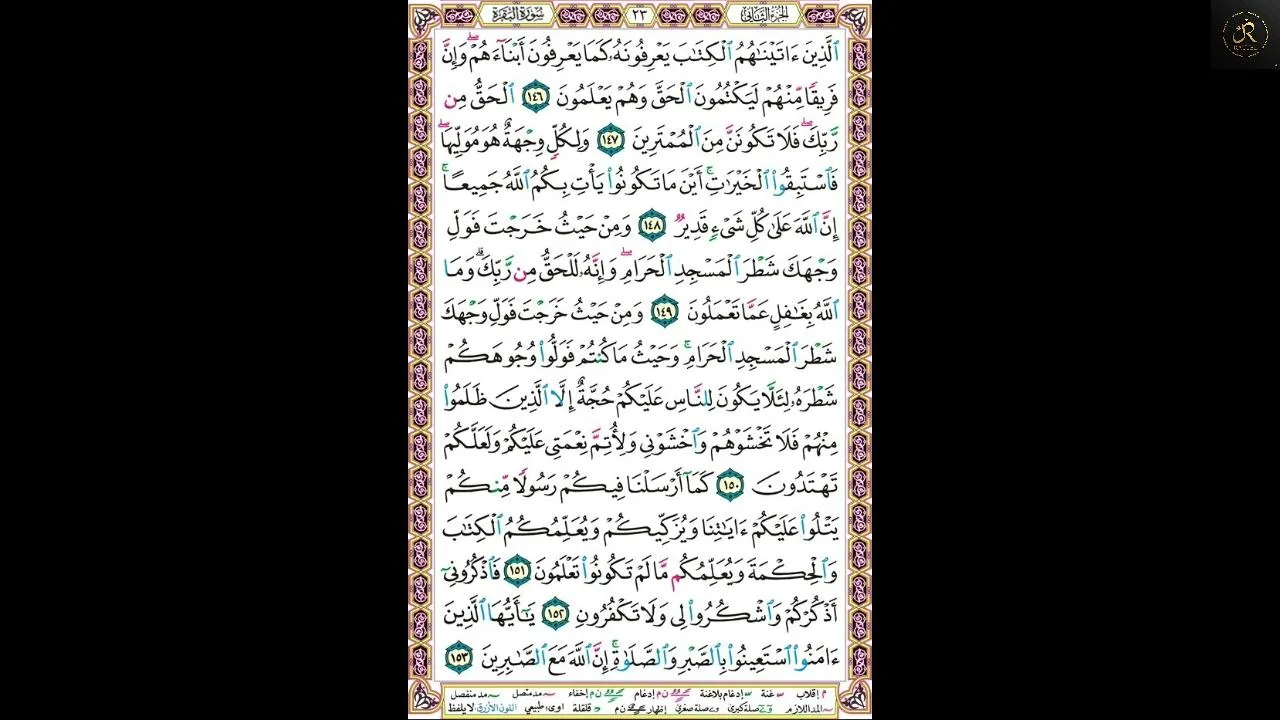 الجزء الثاني ٢٣ سورة البقرة
ٱلَّذِينَ ءَاتَيۡنَٰهُمُ ٱلۡكِتَٰبَ يَعۡرِفُونَهُۥ كَمَا يَعۡرِفُونَ أَبۡنَآءَهُمۡۖ وَإِنَّ
فَرِيقٗا مِّنۡهُمۡ لَيَكۡتُمُونَ ٱلۡحَقَّ وَهُمۡ يَعۡلَمُونَ ١٤٦ ٱلۡحَقُّ مِن
رَّبِّكَۖ فَلَا تَكُونَنَّ مِنَ ٱلۡمُمۡتَرِينَ ١٤٧ وَلِكُلّٖ وِجۡهَةٌ هُوَ مُوَلِّيهَاۖ
فَٱسۡتَبِقُواْ ٱلۡخَيۡرَٰتِۚ أَيۡنَ مَا تَكُونُواْ يَأۡتِ بِكُمُ ٱللَّهُ جَمِيعًاۚ
إِنَّ ٱللَّهَ عَلَىٰ كُلِّ شَيۡءٖ قَدِيرٞ ١٤٨ وَمِنۡ حَيۡثُ خَرَجۡتَ فَوَلِّ
وَجۡهَكَ شَطۡرَ ٱلۡمَسۡجِدِ ٱلۡحَرَامِۖ وَإِنَّهُۥ لَلۡحَقُّ مِن رَّبِّكَۗ وَمَا
ٱللَّهُ بِغَٰفِلٍ عَمَّا تَعۡمَلُونَ ١٤٩ وَمِنۡ حَيۡثُ خَرَجۡتَ فَوَلِّ وَجۡهَكَ
شَطۡرَ ٱلۡمَسۡجِدِ ٱلۡحَرَامِۚ وَحَيۡثُ مَا كُنتُمۡ فَوَلُّواْ وُجُوهَكُمۡ
شَطۡرَهُۥ لِئَلَّا يَكُونَ لِلنَّاسِ عَلَيۡكُمۡ حُجَّةٌ إِلَّا ٱلَّذِينَ ظَلَمُواْ
مِنۡهُمۡ فَلَا تَخۡشَوۡهُمۡ وَٱخۡشَوۡنِي وَلِأُتِمَّ نِعۡمَتِي عَلَيۡكُمۡ وَلَعَلَّكُمۡ
تَهۡتَدُونَ ١٥٠ كَمَآ أَرۡسَلۡنَا فِيكُمۡ رَسُولٗا مِّنكُمۡ
يَتۡلُواْ عَلَيۡكُمۡ ءَايَٰتِنَا وَيُزَكِّيكُمۡ وَيُعَلِّمُكُمُ ٱلۡكِتَٰبَ
وَٱلۡحِكۡمَةَ وَيُعَلِّمُكُم مَّا لَمۡ تَكُونُواْ تَعۡلَمُونَ ١٥١ فَٱذۡكُرُونِيٓ
أَذۡكُرۡكُمۡ وَٱشۡكُرُواْ لِي وَلَا تَكۡفُرُونِ ١٥٢ يَٰٓأَيُّهَا ٱلَّذِينَ
ءَامَنُواْ ٱسۡتَعِينُواْ بِٱلصَّبۡرِ وَٱلصَّلَوٰةِۚ إِنَّ ٱللَّهَ مَعَ ٱلصَّٰبِرِينَ ١٥٣
م إقلاب غنة إدغام بلاغنة ن م إدغام ن م إخفاء مد متصل مد منفصل
المد اللازم صلة كبرى صلة صغرى إظهار ن م قلقلة اوى، طبيعي اللون الأزرق لا يلفظ